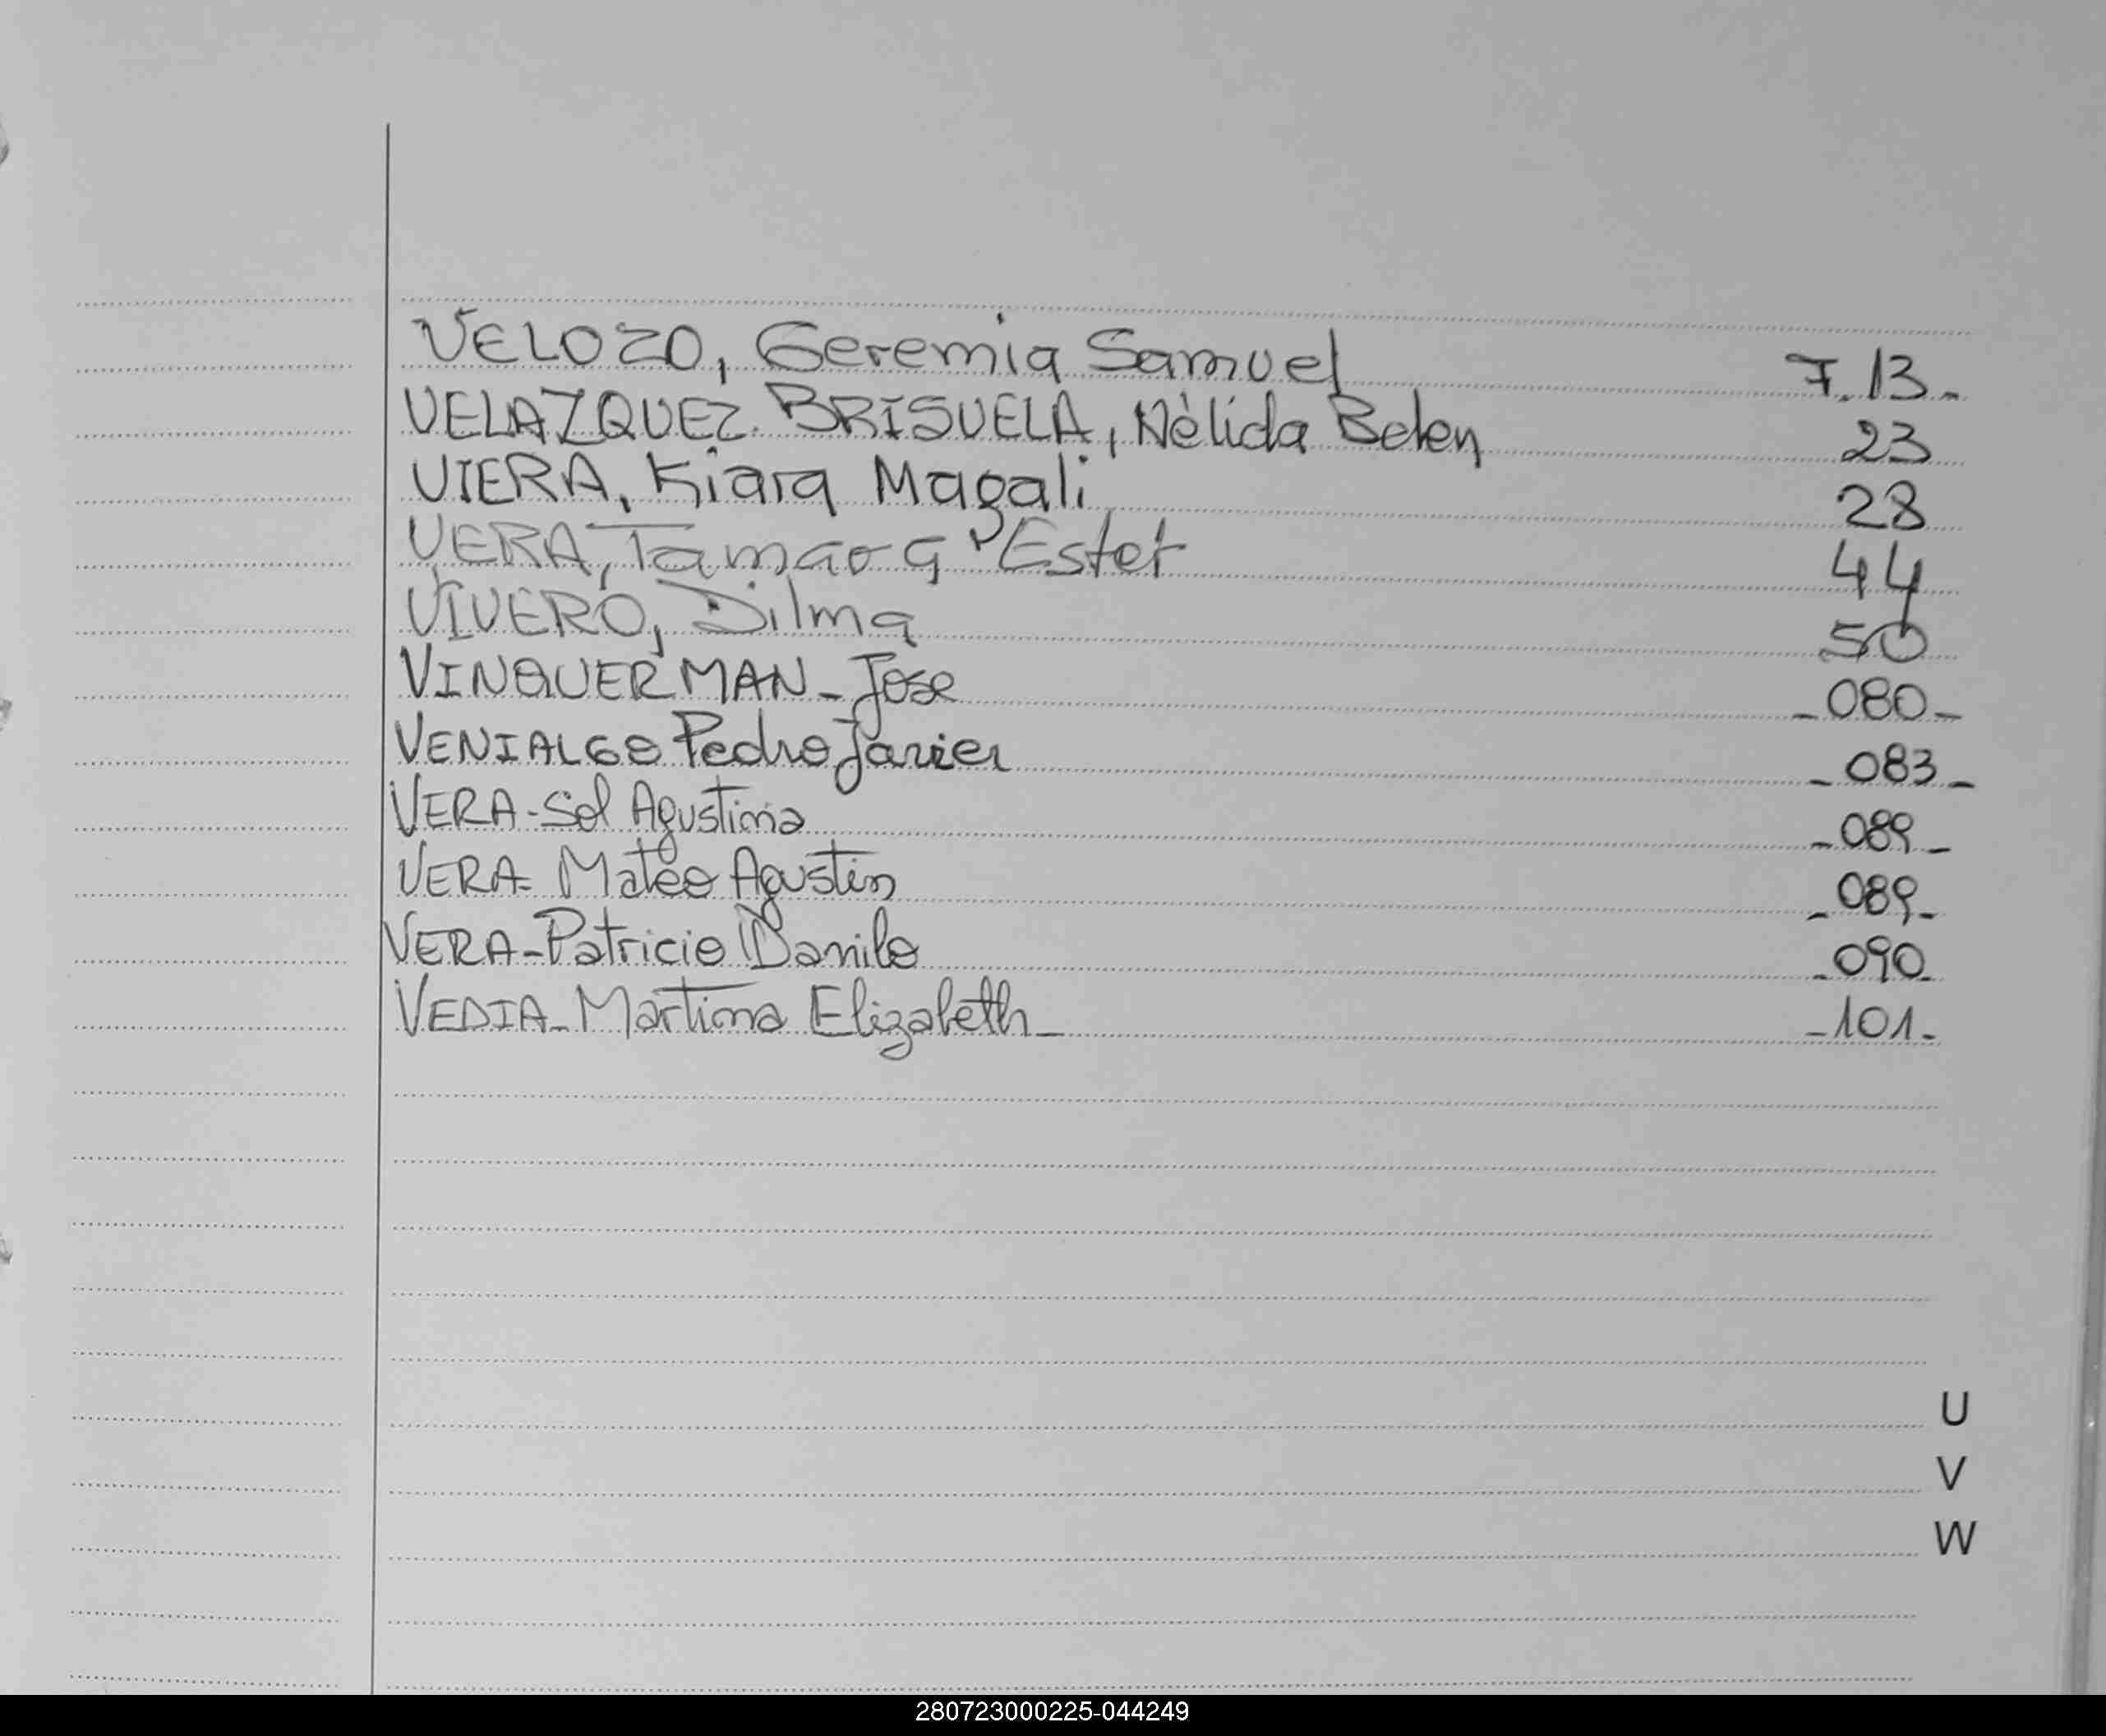 VELOZO, Geremia Samuel F. 13-
VELAZQUEZ BRISUELA, Nélida Belen 23
VIERA, Kiara Magali 28
VERA, Tamara Ester 44
VIVERO, Dilma 50
VINQUERMAN - Jose - 080 -
VENIALGO Pedro Javier - 083 -
VERA - Sol Agustina - 089 -
VERA - Mateo Agustin - 089 -
VERA - Patricio Danilo - 090 -
VEDIA - Martina Elizabeth - - 101 -
U
V
W
280723000225-044249